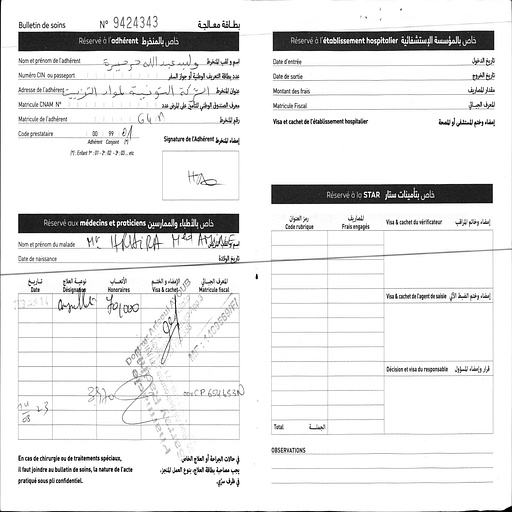 Bulletin de soins N° 9424343 بطاقة معالجة
Réservé à l'adhérent خاص بالمنخرط
Nom et prénom de l'adhérent وليد عبد الله اسم و لقب المنخرط
Numéro CIN ou passeport عدد بطاقة التعريف الوطنية أو جواز السفر
Adresse de l'adhérent الشركة التونسية لمواد التزييت عنوان المنخرط
Matricule CNAM N° معرف الصندوق الوطني للتأمين على المرض عدد
Matricule de l'adhérent رقم المنخرط
Code prestataire 00 99 01
Adhérent Conjoint (*)
(*) : Enfant 1er : 01 - 2e : 02 - 3e : 03 ... etc
Signature de l'Adhérent إمضاء المنخرط
Réservé aux médecins et praticiens خاص بالأطباء والممارسين
Nom et prénom du malade
Date de naissance تاريخ الولادة
تاريخ نوعية العلاج الأتعاب الإمضاء و الختم المعرف الجبائي
Date Désignation Honoraires Visa & cachet Matricule fiscal
70,000
En cas de chirurgie ou de traitements spéciaux,
il faut joindre au bulletin de soins, la nature de l'acte
pratiqué sous pli confidentiel.
في حالات الجراحة أو العلاج الخاص
يجب مصاحبة بطاقة العلاج، بنوع العمل المنجز،
في ظرف سري.
Réservé à l'établissement hospitalier خاص بالمؤسسة الإستشفائية
Date d'entrée تاريخ الدخول
Date de sortie تاريخ الخروج
Montant des frais مقدار المصاريف
Matricule Fiscal المعرف الجبائي
Visa et cachet de l'établissement hospitalier إمضاء وختم المستشفى أو المصحة
Réservé à la STAR خاص بتأمينات ستار
رمز العنوان المصاريف
Code rubrique Frais engagés
Visa & cachet du vérificateur إمضاء وخاتم المراقب
Visa & cachet de l'agent de saisie إمضاء وختم الضبط الآلي
Décision et visa du responsable قرار وإمضاء المسؤول
Total الجملة
OBSERVATIONS